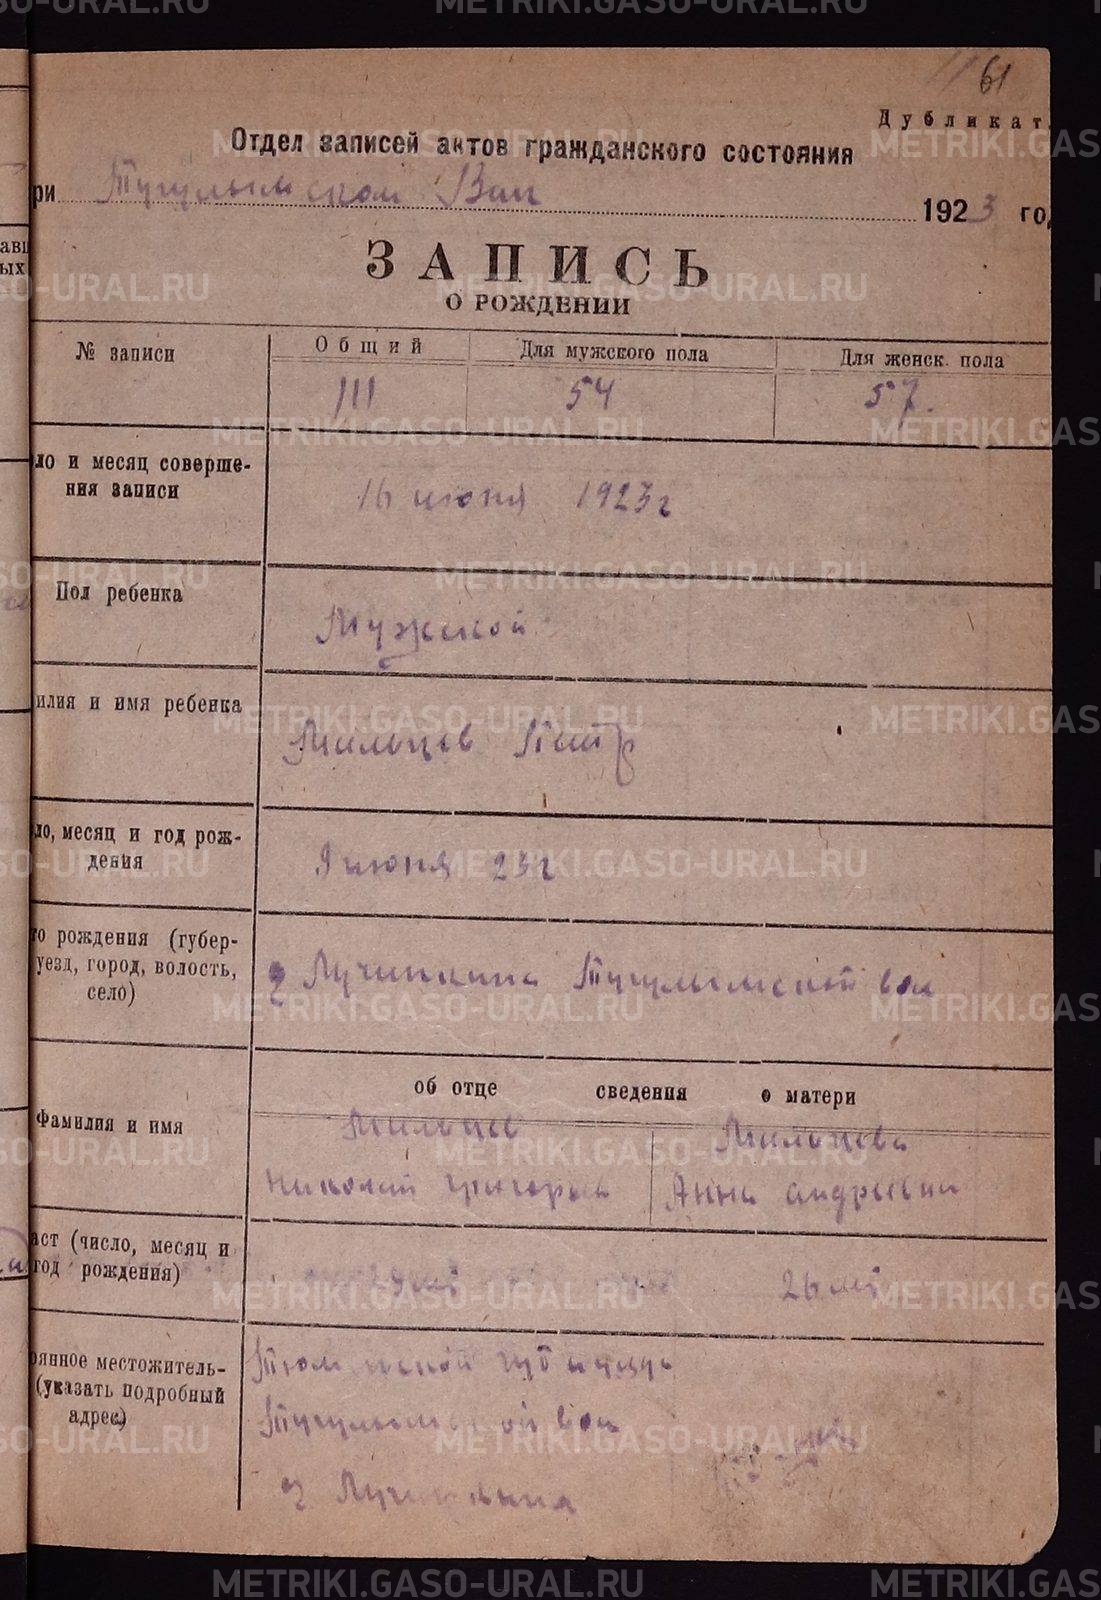 61
Дубликат.
Отдел записей актов гражданского состояния
ри Тугулымском Вик 1923 год
ЗАПИСЬ
О РОЖДЕНИИ
№ записи
Общий
Для мужского пола
Для женск. пола
111
54
57.
ло и месяц соверше-
ния записи
16 июня 1923 г
Пол ребенка
Мужской
илия и имя ребенка
Мальцев Петр
ло, месяц и год рож-
дения
9 июня 23 г
то рождения (губер-
уезд, город, волость,
село)
д Лучинкина Тугулымской вол
об отце сведения о матери
Фамилия и имя
Мальцев
Мальцева
Николай Григорьев
Анна Андреевна
аст (число, месяц и
год рождения)
29 лет
26 лет
оянное местожитель-
(указать подробный
адрес)
Тюменской губ и уезда
Тугулымской вол
д Лучинкина
METRIKI.GASO-URAL.RU